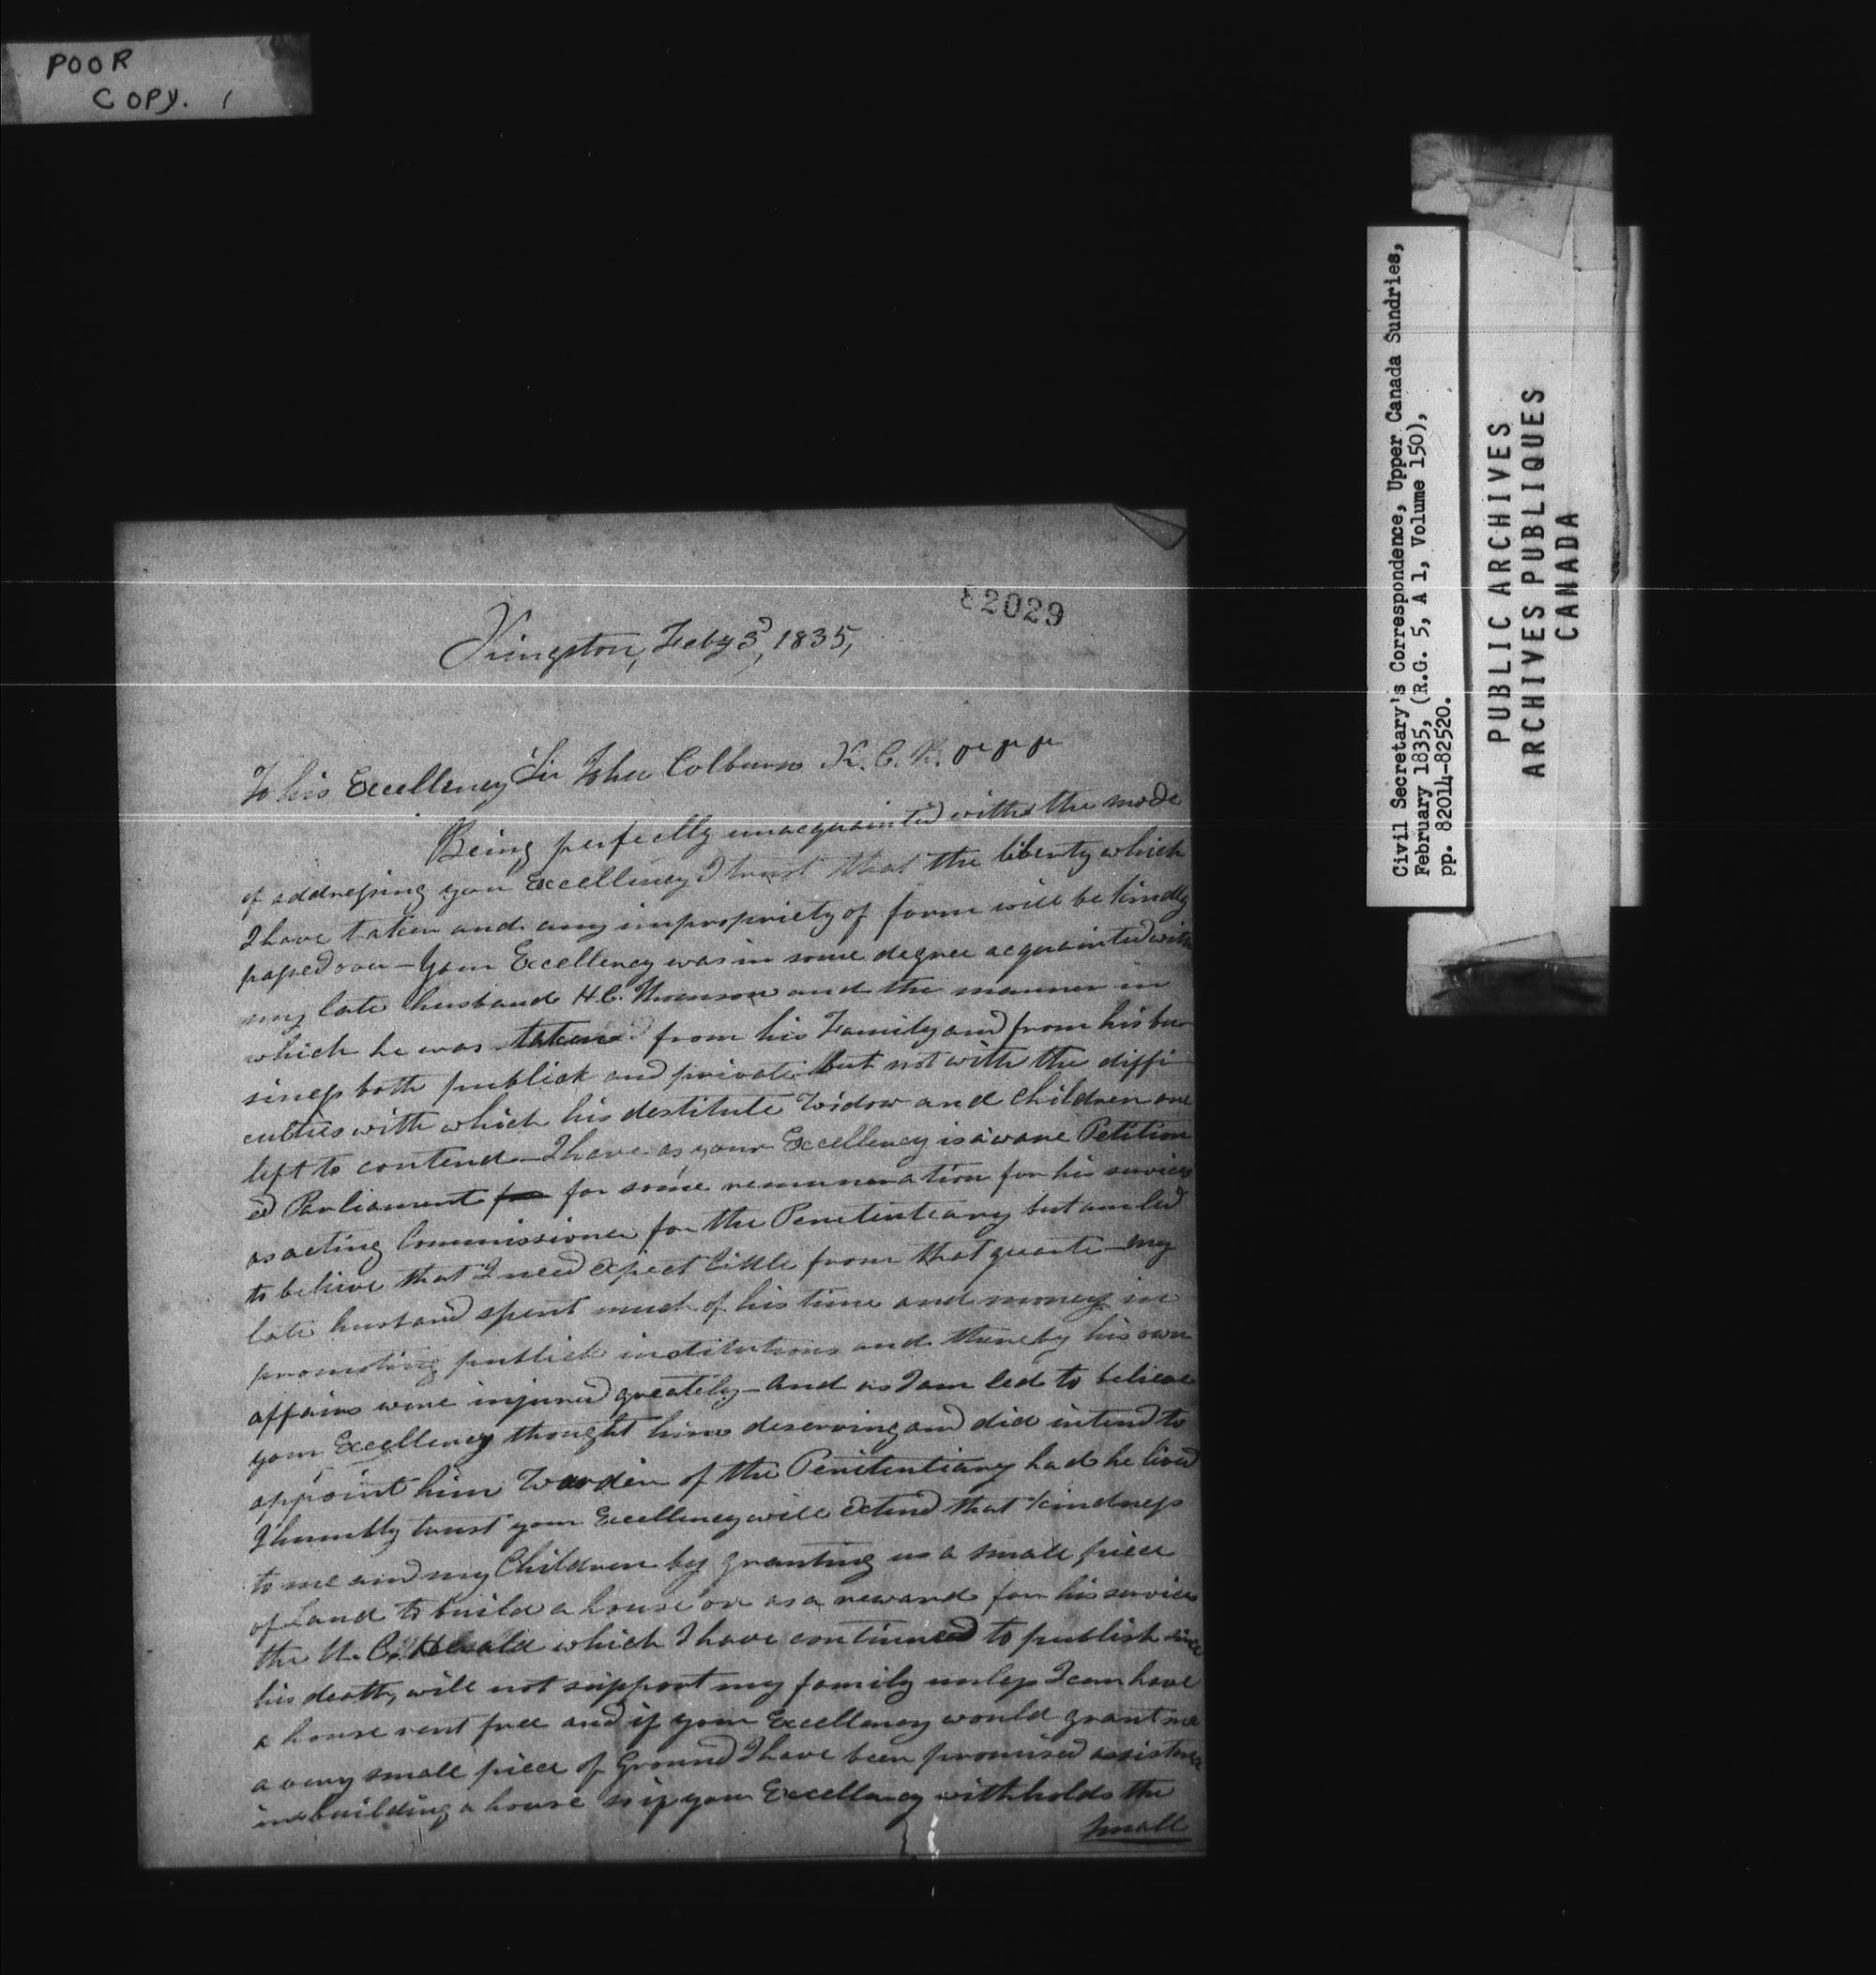 POOR
COPY. 1
82029
Kingston, Feby 3d, 1835,
To his Excellency Sir John Colburn K. C. B. &c &c &c
Being perfectly unacquainted with the mode
of addressing your Excellency I trust that the liberty which
I have taken and any impropriety of form will be kindly
passed over – Your Excellency was in some degree acquainted with
my late husband H.C. Thomson and the manner in
which he was taken from his Family and from his bu-
siness both publick and private but not with the diffi-
culties with which his destitute Widow and children are
left to contend – I have as your Excellency is aware Petition
ed Parliament for some remuneration for his services
as acting Commissioner for the Penitenteary but am led
to belive that I need expect little from that quarte – my
late husband spent much of his time and money in
promoting publick institutions and thereby his own
affairs were injured greately – and as I am led to believe
your Excellency thought him deserving and did intend to
appoint him Warden of the Penitentiary had he lived
I humbly trust your Excellency will extend that kindness
to me and my Children by granting us a small piece
of land to build a house on as a reward for his services
the U. C. Herald which I have continued to publish since
his death, will not support my family unless I can have
a house rent free and if your Excellency would grant me
a very small piece of Ground I have been promised assistance
in building a house so if your Excellency withholds the
small
Civil Secretary's Correspondence, Upper Canada Sundries,
February 1835, (R.G. 5, A 1, Volume 150),
pp. 82014-82520.
PUBLIC ARCHIVES
ARCHIVES PUBLIQUES
CANADA